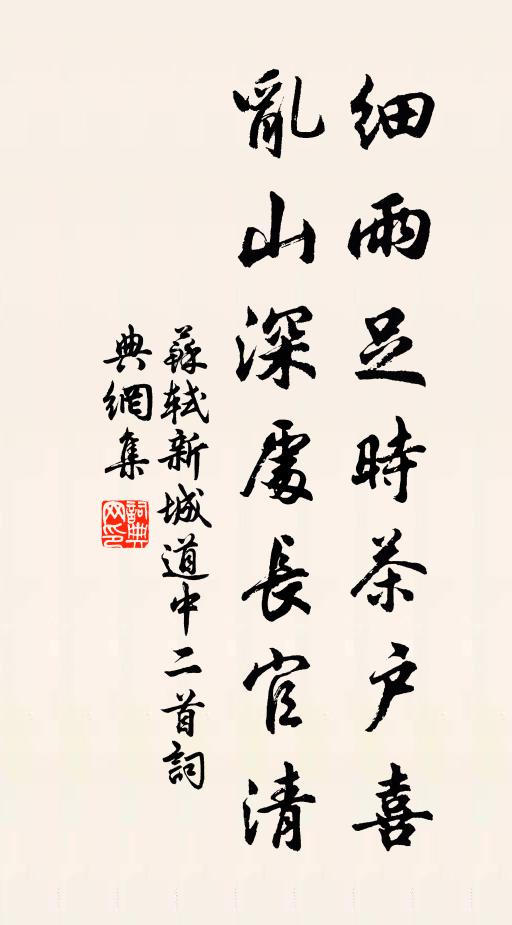 細雨足時茶户喜
亂山深處長官清
蘇軾新城道中二首詞
典網集
詞典網印